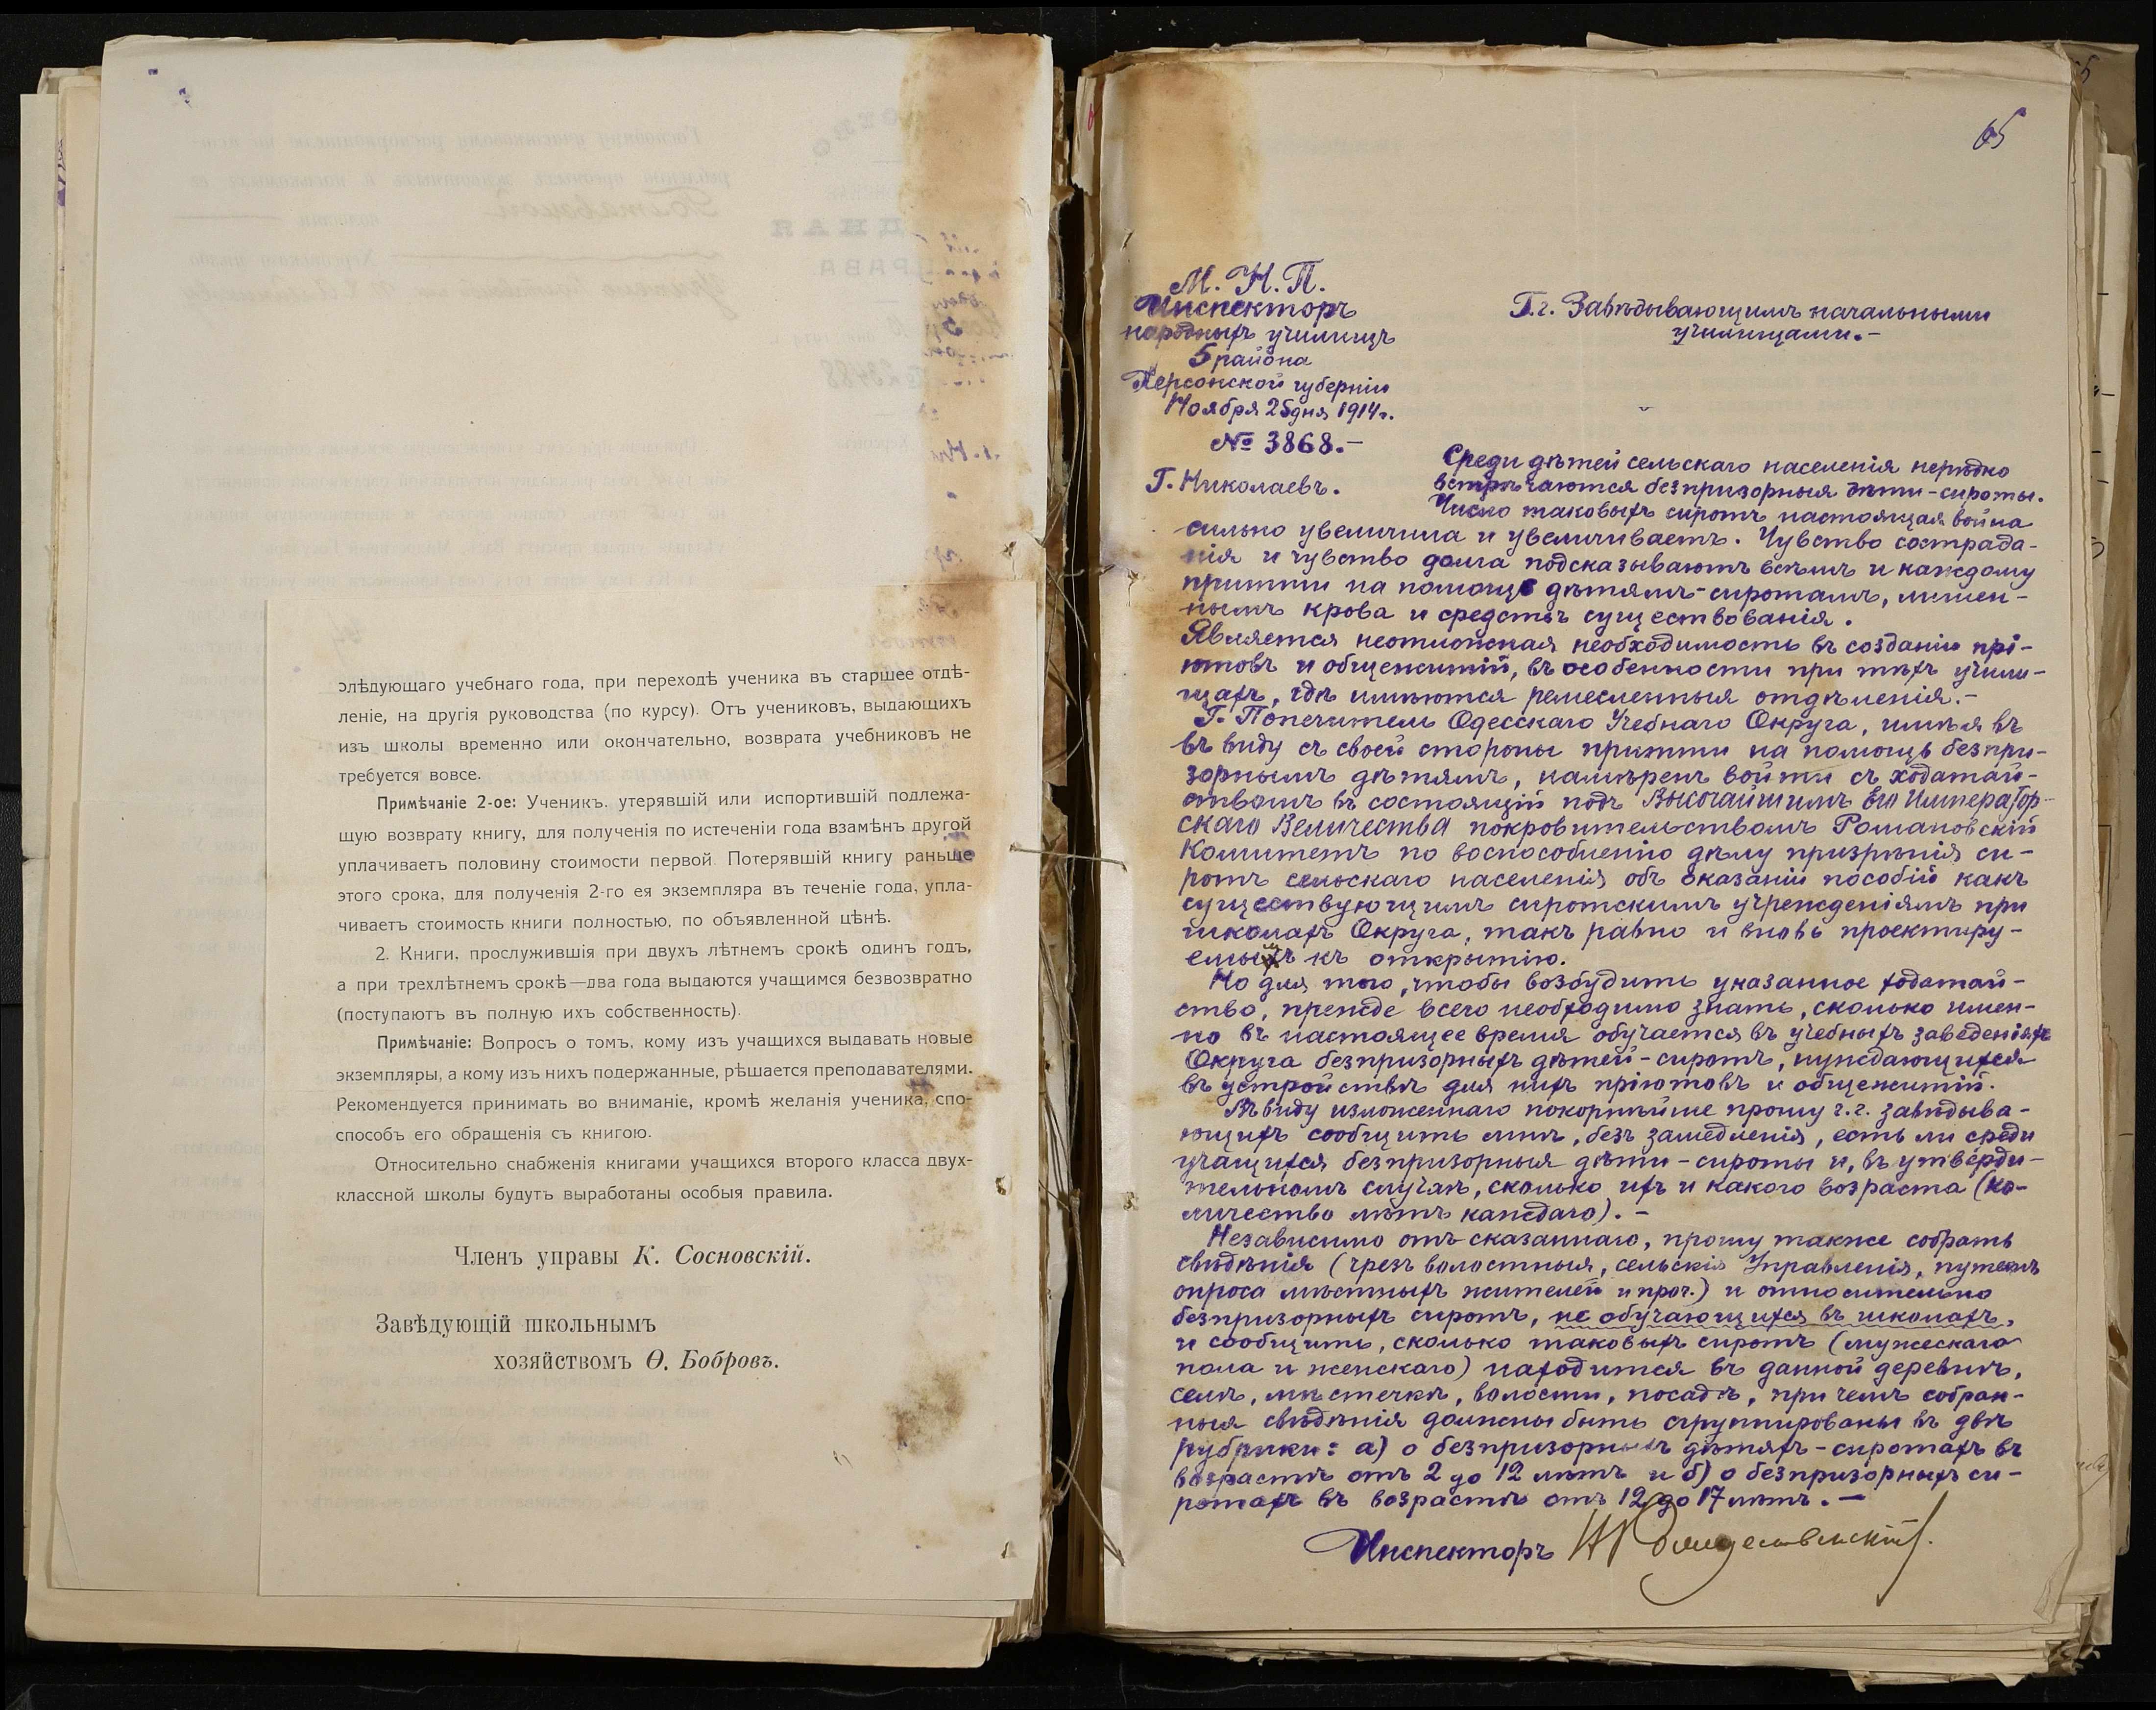 элѣдующаго учебнаго года, при переходѣ ученика въ старшее отдѣ-
леніе, на другія руководства (по курсу). Отъ учениковъ, выдающихъ
изъ школы временно или окончательно, возврата учебниковъ не
требуется вовсе.
Примѣчаніе 2-ое: Ученикъ. утерявшій или испортившій подлежа-
щую возврату книгу, для полученія по истеченіи года взамѣнъ другой
уплачиваетъ половину стоимости первой. Потерявшій книгу раньше
этого срока, для полученія 2-го ея экземпляра въ теченіе года, упла-
чиваетъ стоимость книги полностью, по объявленной цѣнѣ.
2. Книги, прослужившія при двухъ лѣтнемъ срокѣ одинъ годъ,
а при трехлѣтнемъ срокѣ—два года выдаются учащимся безвозвратно
(поступаютъ въ полную ихъ собственность).
Примѣчаніе: Вопросъ о томъ, кому изъ учащихся выдавать новые
экземпляры, а кому изъ нихъ подержанные, рѣшается преподавателями.
Рекомендуется принимать во вниманіе, кромѣ желанія ученика, спо-
способъ его обращенія съ книгою.
Относительно снабженія книгами учащихся второго класса двух-
классной школы будутъ выработаны особыя правила.
Членъ управы К. Сосновскій.
Завѣдующій школьнымъ
хозяйствомъ Ѳ. Бобровъ.
65
М. Н. П.
Инспекторъ
народныхъ училищъ
5 района
Херсонской губерніи
Ноября 25 дня 1914 г.
№ 3868.-
Г. Николаевъ.
Г.г. Завѣдывающимъ начальными
училищами.-
Среди дѣтей сельскаго населенія нерѣдко
встрѣчаются безпризорныя дѣти-сироты.
Число таковыхъ сиротъ настоящая война
сильно увеличила и увеличиваетъ. Чувство сострада-
нія и чувство долга подсказываютъ всѣмъ и каждому
притти на помощь дѣтямъ-сиротамъ, лишен-
нымъ крова и средствъ существованія.
Является неотложная необходимость въ созданіи прі-
ютовъ и общежитій, въ особенности при тѣхъ учили-
щахъ, гдѣ имѣются ремесленныя отдѣленія.-
Г. Попечитель Одесскаго Учебнаго Округа, имѣя въ
въ виду съ своей стороны притти на помощь безпри-
зорнымъ дѣтямъ, намѣренъ войти съ ходатай-
ствомъ въ состоящій подъ Высочайшимъ Его Император-
скаго Величества покровительствомъ Романовскій
Комитетъ по воспособленію дѣлу призрѣнія си-
ротъ сельскаго населенія объ оказаніи пособій какъ
существующимъ сиротскимъ учрежденіямъ при
школахъ Округа, такъ равно и вновь проектиру-
емымъ къ открытію.
Но для того, чтобы возбудить указанное ходатай-
ство, прежде всего необходимо знать, сколько имен-
но въ настоящее время обучается въ учебныхъ заведеніяхъ
Округа безпризорныхъ дѣтей-сиротъ, нуждающихся
въ устройствѣ для нихъ пріютовъ и общежитій.
Въ виду изложеннаго покорнѣйше прошу г.г. завѣдыва-
ющихъ сообщить мнѣ, безъ замедленія, есть ли среди
учащихся безпризорныя дѣти-сироты и, въ утверди-
тельномъ случаѣ, сколько ихъ и какого возраста (ко-
личество лѣтъ каждаго).-
Независимо отъ сказаннаго, прошу также собрать
свѣдѣнія (чрезъ волостныя, сельскія Управленія, путемъ
опроса мѣстныхъ жителей и проч.) и относительно
безпризорныхъ сиротъ, не обучающихся въ школахъ,
и сообщить, сколько таковыхъ сиротъ (мужескаго
пола и женскаго) находится въ данной деревнѣ,
селѣ, мѣстечкѣ, волости, посадѣ, при чемъ собран-
ныя свѣдѣнія должны быть сгруппированы въ двѣ
рубрики: а) о безпризорныхъ дѣтяхъ-сиротахъ въ
возрастѣ отъ 2 до 12 лѣтъ и б) о безпризорныхъ си-
ротахъ въ возрастѣ отъ 12 до 17 лѣтъ.-
Инспекторъ